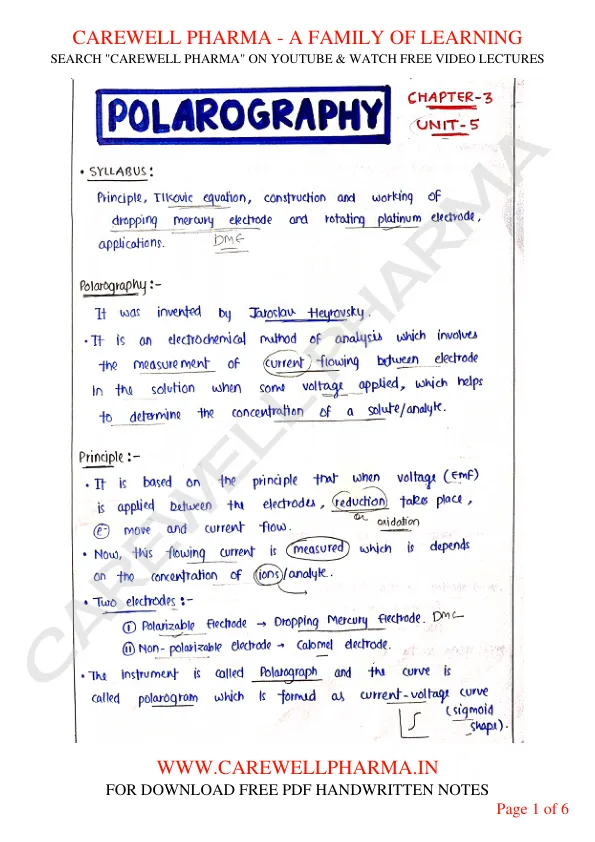 CAREWELL PHARMA - A FAMILY OF LEARNING
SEARCH "CAREWELL PHARMA" ON YOUTUBE & WATCH FREE VIDEO LECTURES
POLAROGRAPHY
CHAPTER-3
UNIT-5
• SYLLABUS:
Principle, Ilkovic equation, construction and working of
dropping mercury electrode and rotating platinum electrode,
applications. DME
Polarography :-
It was invented by Jaroslav Heyrovsky.
• It is an electrochemical method of analysis which involves
the measurement of current flowing between electrode
in the solution when some voltage applied, which helps
to determine the concentration of a solute/analyte.
Principle :-
• It is based on the principle that when voltage (Emf)
is applied between the electrodes, reduction takes place,
or oxidation
e⁻ move and current flow.
• Now, this flowing current is measured which is depends
on the concentration of ions/analyte.
• Two electrodes :-
(i) Polarizable Electrode → Dropping Mercury Electrode. DME
(ii) Non-polarizable electrode → Calomel electrode.
• The instrument is called Polarograph and the curve is
called polarogram which is formed as current-voltage curve
(sigmoid
shape).
CAREWELL PHARMA
WWW.CAREWELLPHARMA.IN
FOR DOWNLOAD FREE PDF HANDWRITTEN NOTES
Page 1 of 6